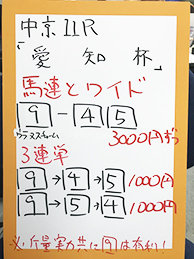 中京11R
「愛知杯」
馬連とワイド
9-45
ウラヌスチャーム
3000円ずつ
3連単
9→4→5 1000円
9→5→4 1000円
※斤量実力共に9は有利!